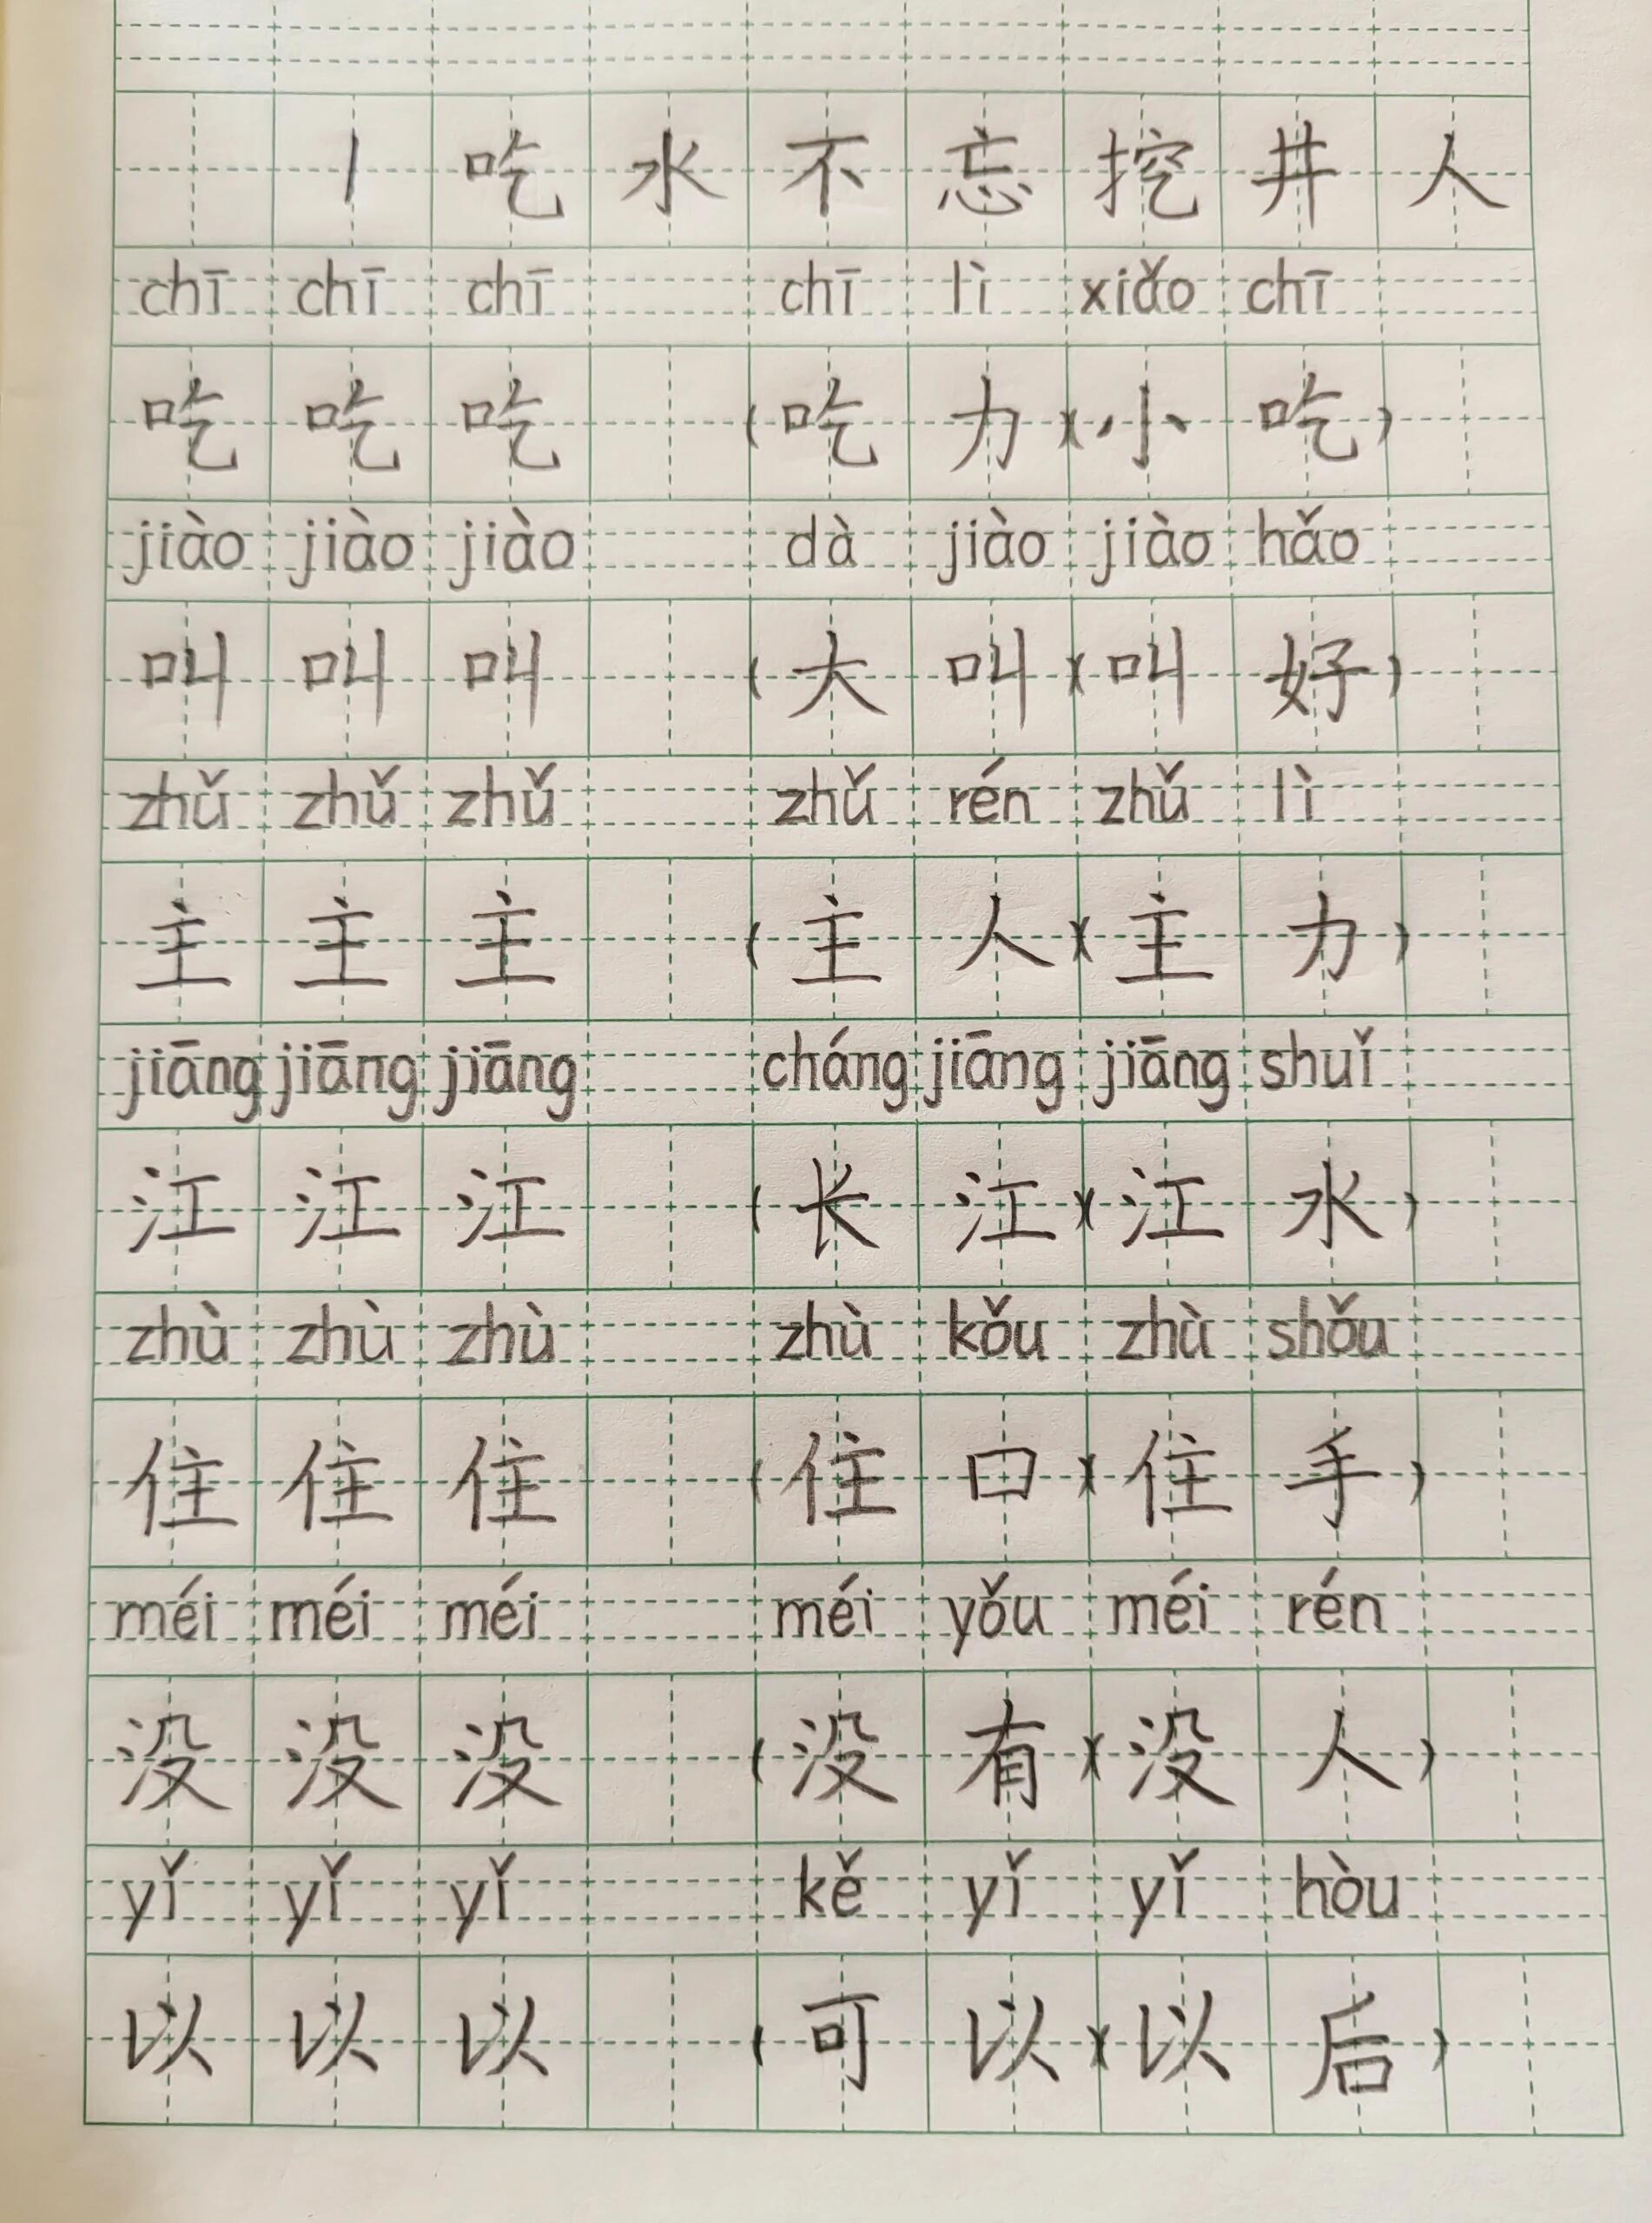 1 吃水不忘挖井人
chī chī chī chī lì xiǎo chī
吃 吃 吃 (吃力)(小吃)
jiào jiào jiào dà jiào jiào hǎo
叫 叫 叫 (大叫)(叫好)
zhǔ zhǔ zhǔ zhǔ rén zhǔ lì
主 主 主 (主人)(主力)
jiāng jiāng jiāng cháng jiāng jiāng shuǐ
江 江 江 (长江)(江水)
zhù zhù zhù zhù kǒu zhù shǒu
住 住 住 (住口)(住手)
méi méi méi méi yǒu méi rén
没 没 没 (没有)(没人)
yǐ yǐ yǐ kě yǐ yǐ hòu
以 以 以 (可以)(以后)